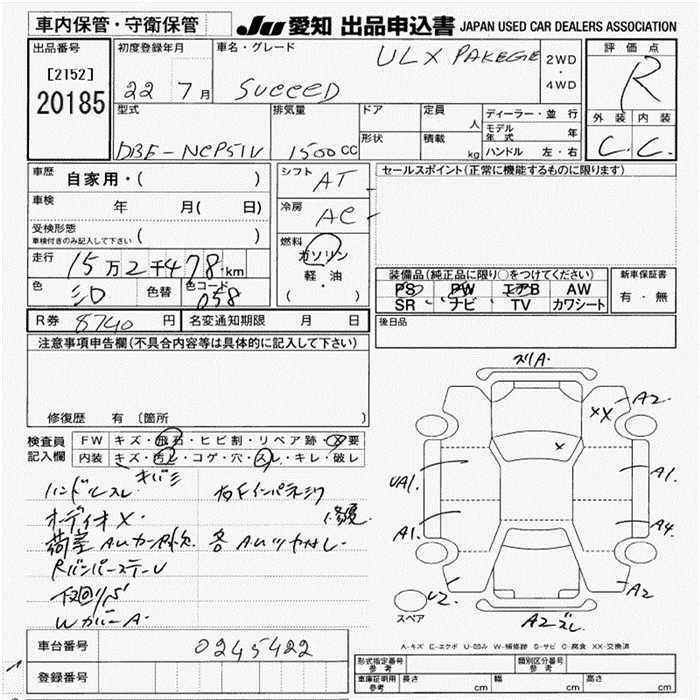 車内保管・守衛保管
JU 愛知 出品申込書 JAPAN USED CAR DEALERS ASSOCIATION
出品番号
[2152]
20185
初度登録年月
22 7月
車名・グレード
SUCCEED
ULX PAKEGE
2WD
・
4WD
評価点
R
外装 内装
C. C.
型式
DBE-NCP51V
排気量
1500CC
ドア
形状
定員
人
積載
kg
ディーラー・並行
モデル年式 年
ハンドル 左・右
車歴 自家用・( )
車検 年 月( 日)
受検形態
車検付きのみ記入して下さい ( )
走行 15万2千478km
色
色替
色コード
058
シフト AT
冷房 AC
燃料
ガソリン
・
軽・油
( )
セールスポイント(正常に機能するものに限ります)
装備品(純正品に限り○をつけてください)
PS PW エアB AW
SR ナビ TV カワシート
新車保証書
有・無
R券 8740 円 名変通知期限 月 日
後日品
注意事項申告欄(不具合内容等は具体的に記入して下さい)
修復歴 有〔箇所
検査員
記入欄
FW キズ・飛石・ヒビ割・リペア跡・×要
内装 キズ・汚れ・コゲ・穴・スレ・キレ・破レ
キバミ
ハンドルスレ
右Fインパネキリ
オーディオX.
修復.
荷室AUカン
各AUツヤナシ.
RバンパーステーU
下回りS
WカバーA.
ズリA.
A2
XX
X
UA1.
A1.
A1.
A4.
A2
U2.
A2ズレ.
スペア
A-キズ E-エクボ U-凹み W-補修跡 S-サビ C-腐食 XX-交換済
車台番号 0245422
登録番号
形式指定番号
参考
類別区分番号
参考
車庫証明用
参考
長さ cm 幅 cm 高さ cm